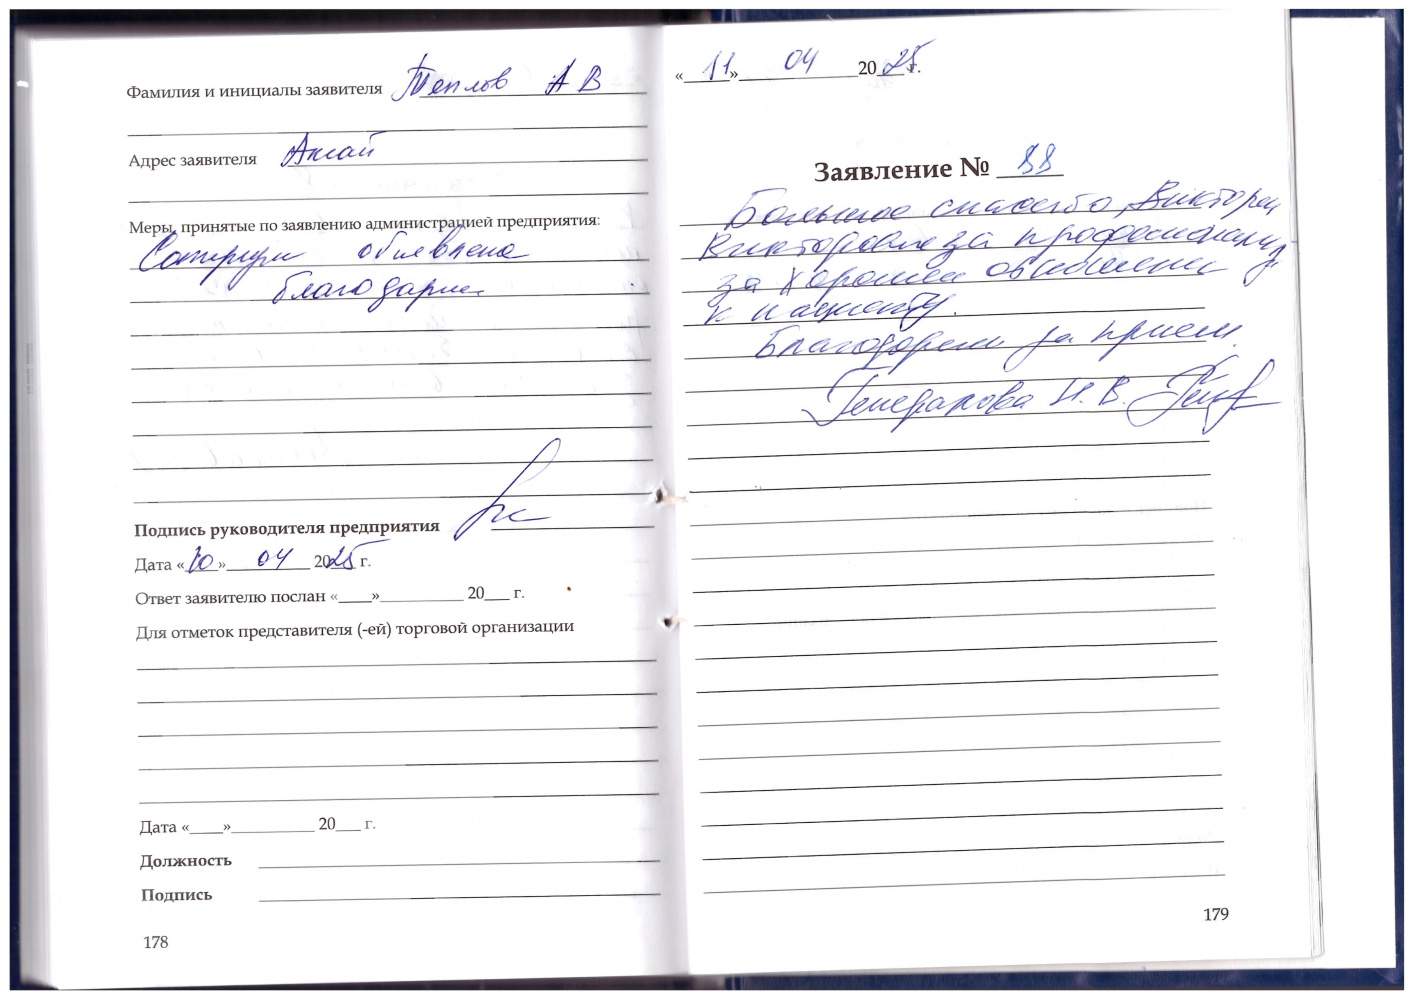 Фамилия и инициалы заявителя Теплов А В
Адрес заявителя Аксай
Меры, принятые по заявлению администрацией предприятия:
объявлена
Подпись руководителя предприятия
Дата «10» 04 2025 г.
Ответ заявителю послан «____»__________ 20___ г.
Для отметок представителя (-ей) торговой организации
Дата «____»__________ 20___ г.
Должность
Подпись
178
«11» 04 2025 г.
Заявление № 88
Большое спасибо, Виктории
Викторовне за профессионализм
за хорошее отношение
к пациенту.
за прием.
И. В.
179